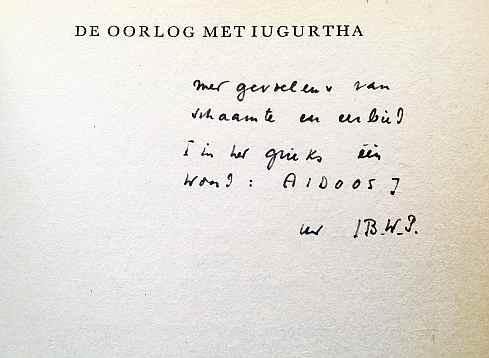 DE OORLOG MET IUGURTHA
met gevoelens van
schaamte en eerbied
[ in het grieks één
woord : AIDOOS ]
B.W.P.